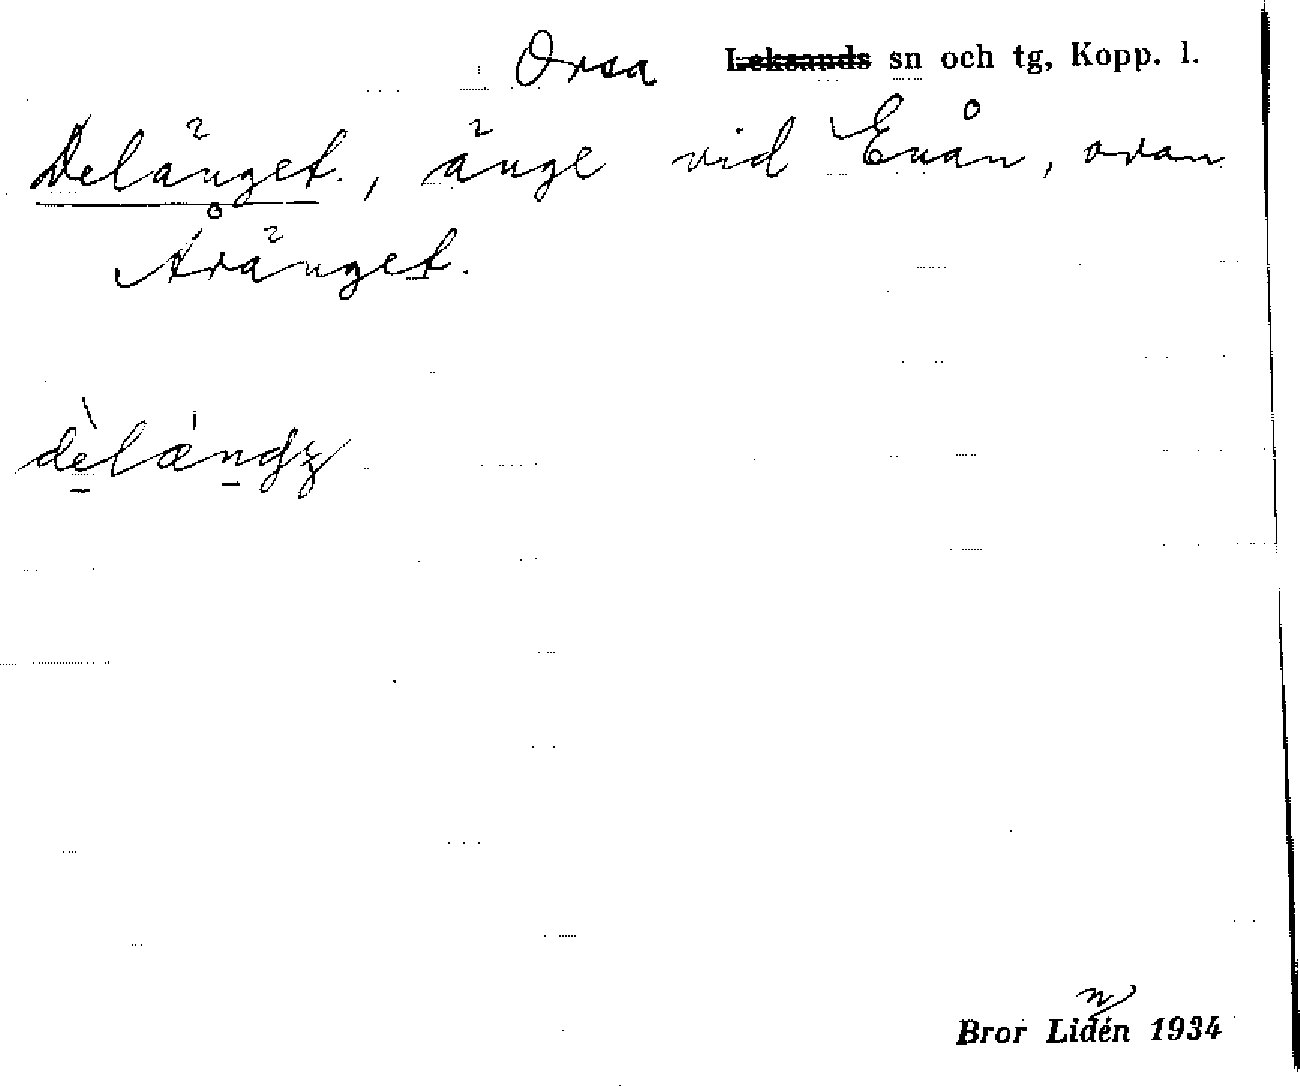 Orsa Leksands sn och tg, Kopp. l.
Delänget, änge vid Enån, ovan
Åränget.
dèlǽndʒ
Bror Lidén 1934